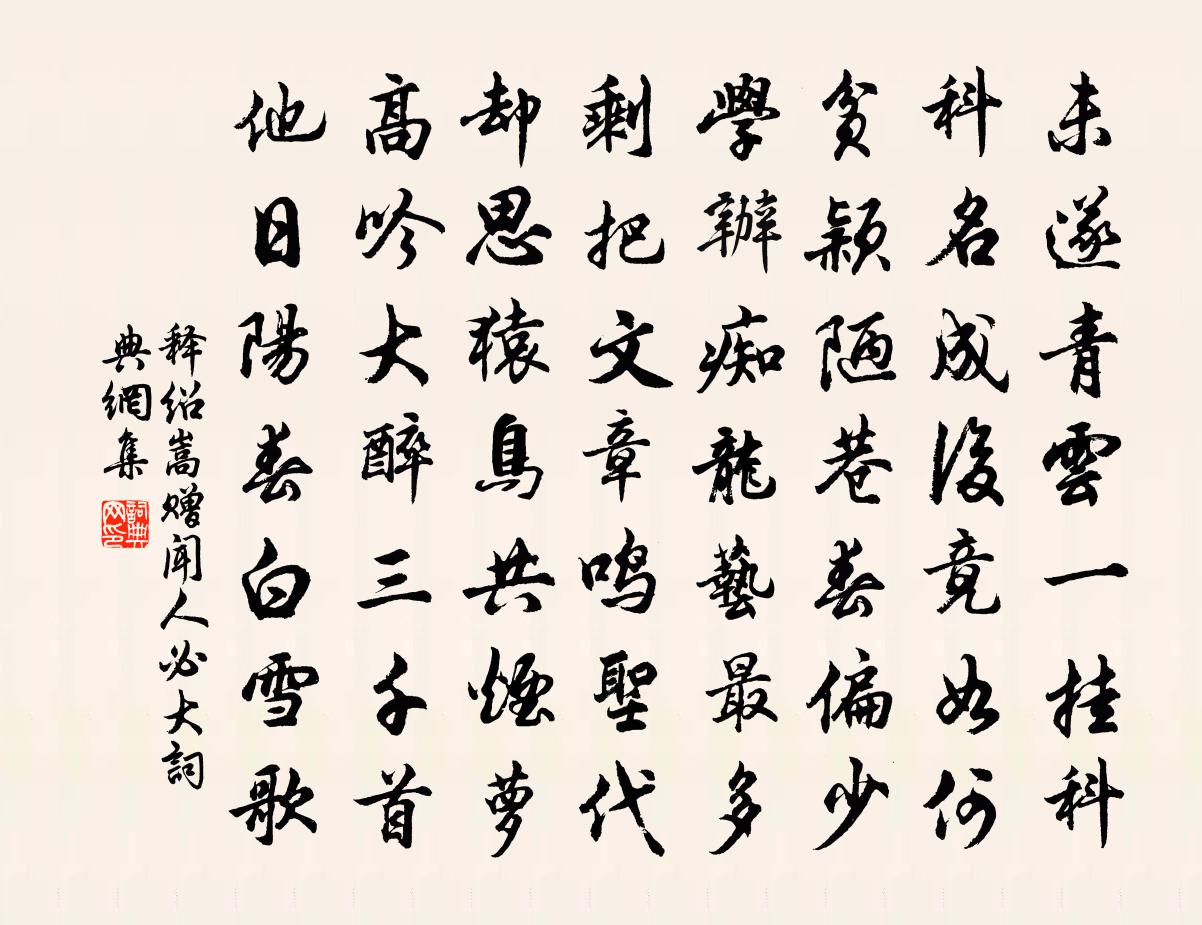 未遂青雲一挂科
科名成後竟如何
貧穎陋巷春偏少
學辦痴龍藝最多
剩把文章鳴聖代
却思猿鳥共煙夢
高吟大醉三千首
他日陽春白雪歌
释绍嵩赠闻人必大詞
典網集
詞典网印